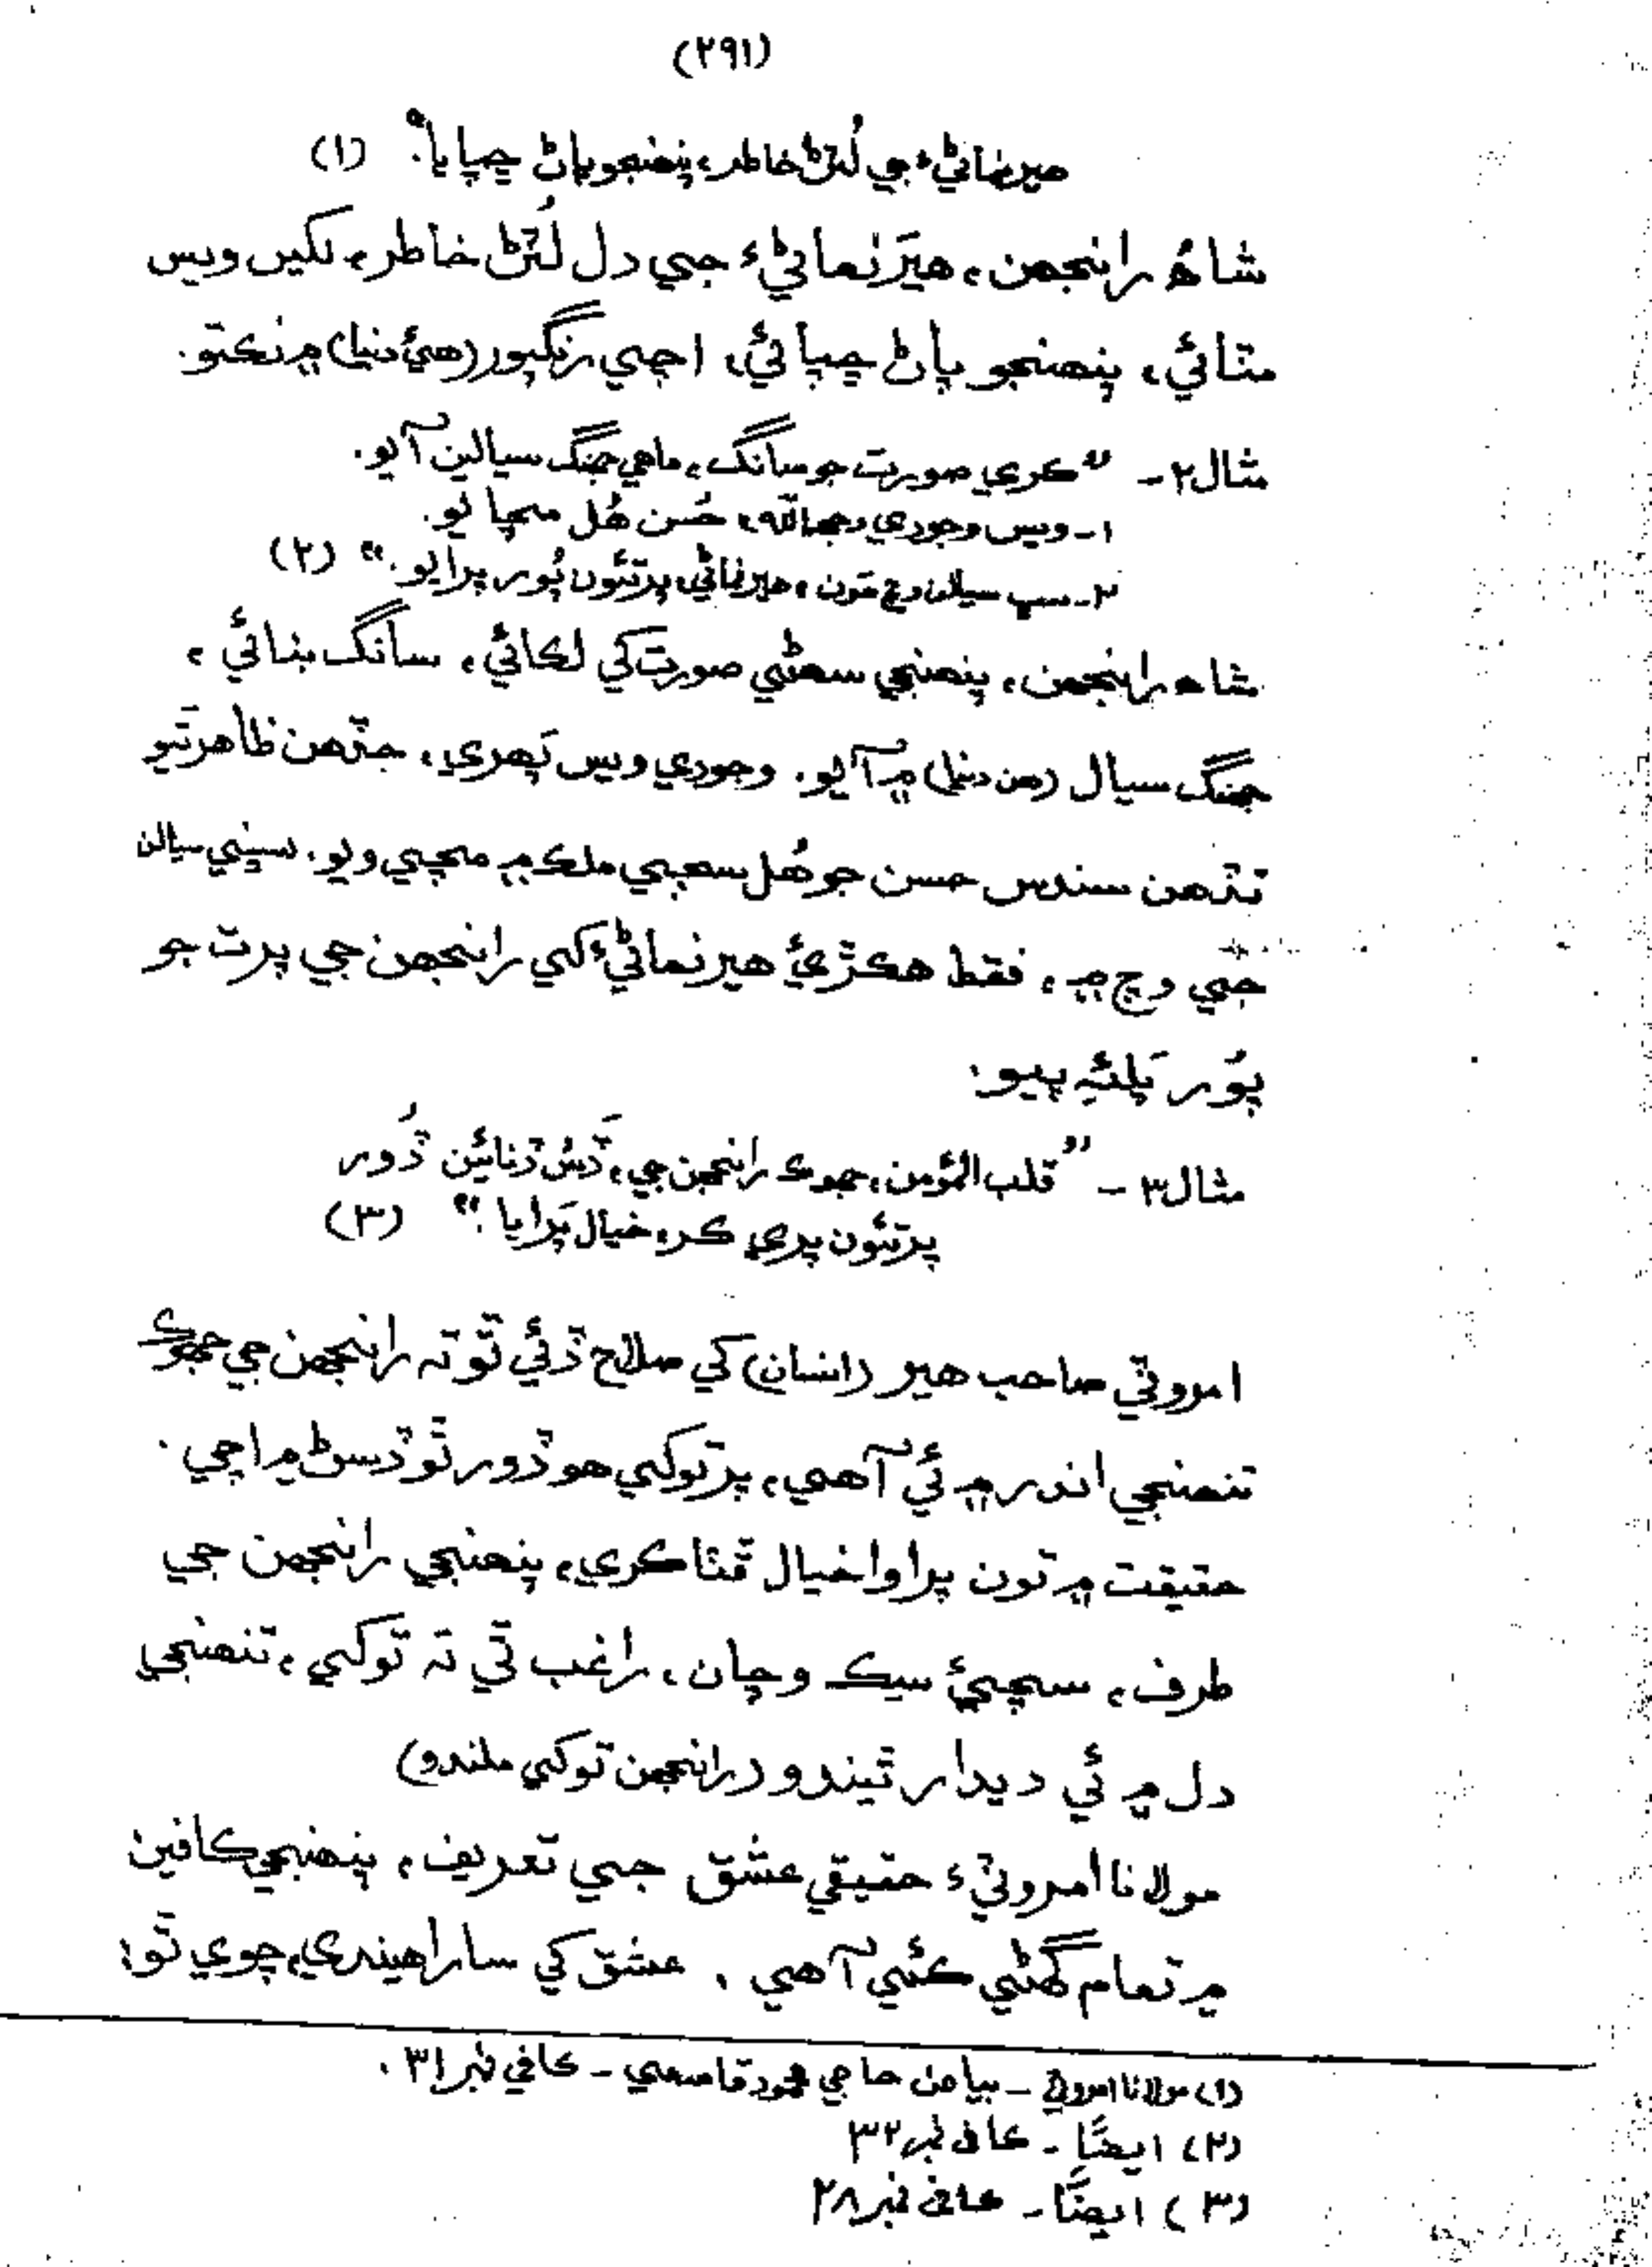 (۲۹۱)
هيرنماڻيءَ جي لُٽڻ خاطر، پنھنجو پاڻ ڇپايا." (۱)
شاھُ رانجھن، هيرَ نماڻيءَ جي دل لُٽڻ خاطر، لکين ويس
مٽائي، پنھنجو پاڻ ڇپائي، اچي رنگپور (هيءَ دنيا) ۾ نڪتو.
مثال۲- "ڪري صورت جو سانگ، ماهي جھنگ سيالين آيو.
۱- ويس وجودي وجھہ الله، حُسن هُل مچايو.
۲- سڀ سيالن وچ تون، هيرنماڻي، پرتئون پُور پرايو." (۲)
شاه رانجھن، پنھنجي سھڻي صورت کي لڪائي، سانگ بنائي،
جھنگ سيال (هن دنيا) ۾ آيو. وجودي ويس پَھري، جڏهن ظاهر ٿيو
تڏهن سندس حسن جو هُل سڄي ملڪ ۾ مچي ويو. سڀني سيالن
جي وچ ۾، فقط هڪڙيءَ هير نماڻيءَ کي رانجھن جي پرت جو
پوُر پلئہِ پيو.
مثال۳ - "قلب المؤمن، جھوڪ رانجھن جي، ڏَسُ ڏنائين ڏُور
پرتئون پري ڪر، خيال پَرايا." (۳)
امروٽي صاحب هير (انسان) کي صلاح ڏئي ٿو تہ رانجھن جي جھوڪ
تنھنجي اندر ۾ ئي آهي، پر توکي هو ڏور ٿو ڏسڻ ۾ اچي.
حقيقت ۾ تون پراوا خيال ڦٽا ڪري، پنھنجي رانجھن جي
طرف، سچيءَ سڪ وچان، راغب ٿي تہ توکي، تنھنجي
دل ۾ ئي ديدار ٿيندو (رانجھن توکي ملندو)
مولانا امروٽيءَ حقيقي عشق جي تعريف، پنھنجي ڪافين
۾ تمام گھڻي ڪئي آهي. عشق کي ساراهيندي، چوي ٿو:
(۱) مولانا امروٽي - بياض حاجي محمود قاسمي - ڪافي نمبر ۳۱.
(۲) ايضًا - ڪافي نمبر ۳۲
(۳) ايضًا - ڪافي نمبر ۲۸